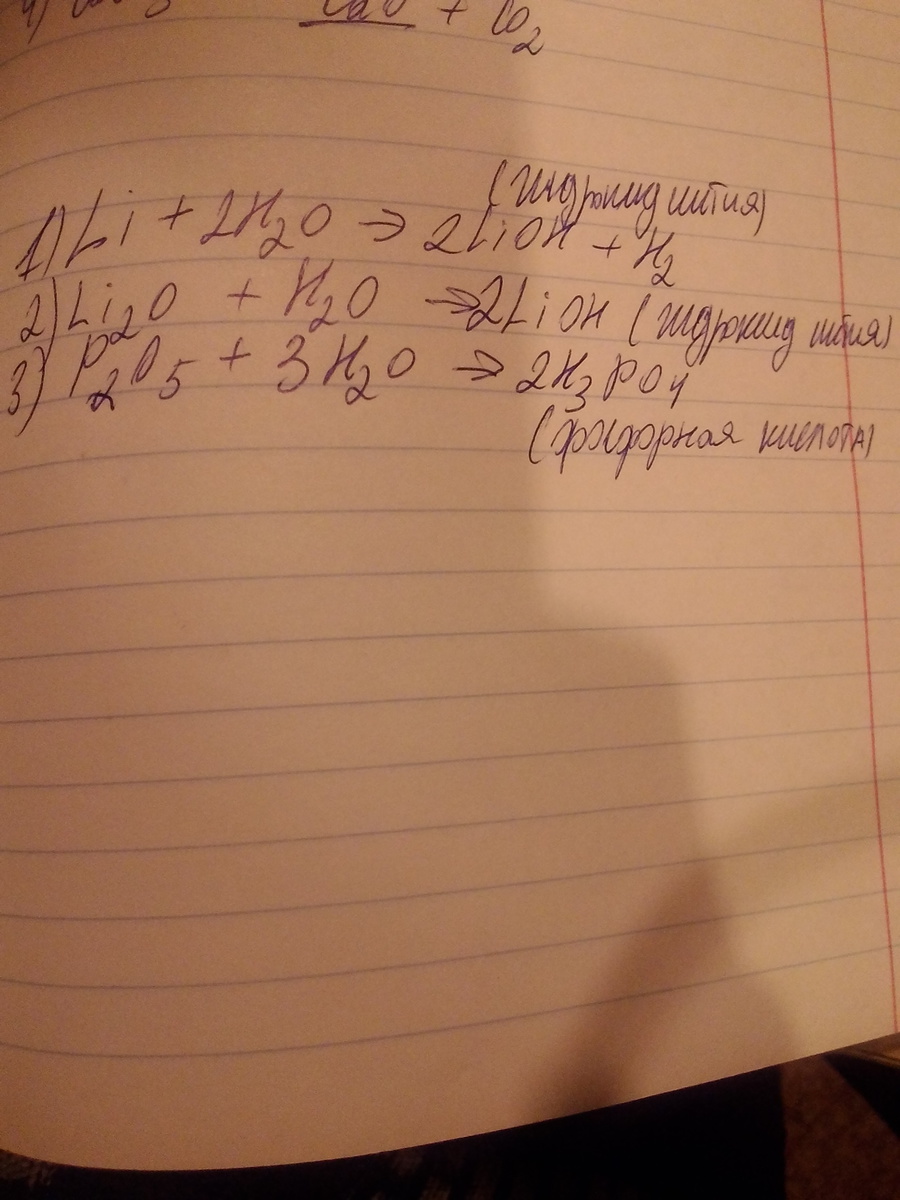 + CO2
(гидроксид лития)
1) Li + 2H2O → 2LiOH + H2
2) Li2O + H2O → 2LiOH (гидроксид лития)
3) P2O5 + 3H2O → 2H3PO4
(фосфорная кислота)